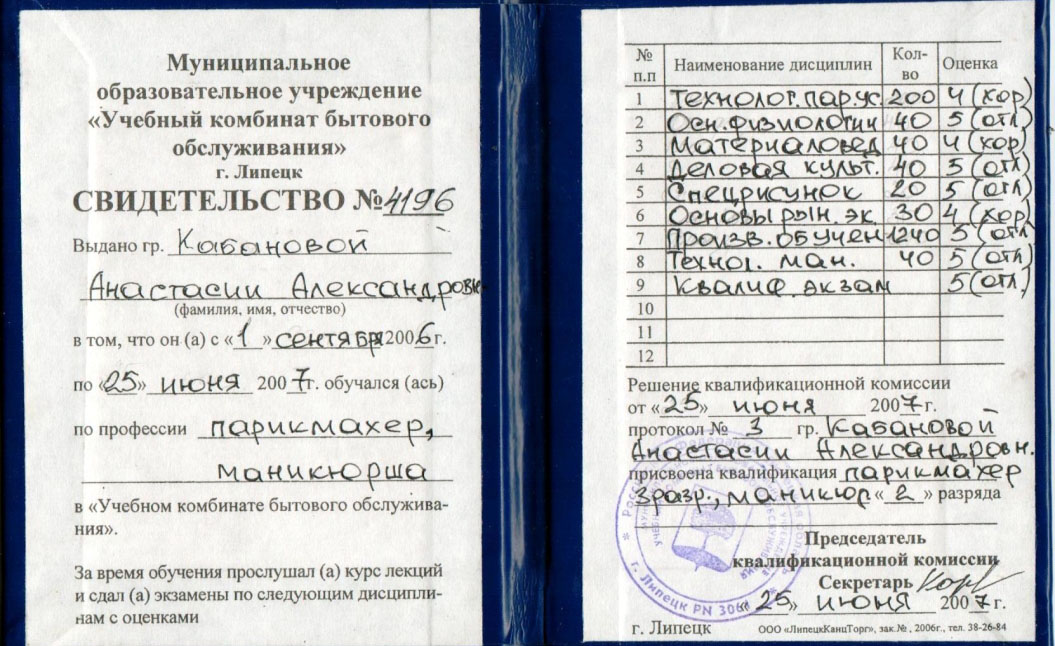 Муниципальное
образовательное учреждение
«Учебный комбинат бытового
обслуживания»
г. Липецк
СВИДЕТЕЛЬСТВО №4196
Выдано гр. Кабановой
Анастасии Александровн
(фамилия, имя, отчество)
в том, что он (а) с «1» сентября 2006г.
по «25» июня 2007г. обучался (ась)
по профессии парикмахер,
маникюрша
в «Учебном комбинате бытового обслужива-
ния».
За время обучения прослушал (а) курс лекций
и сдал (а) экзамены по следующим дисципли-
нам с оценками
№ п.п Наименование дисциплин Кол-во Оценка
1 Технолог. парус. 200 4 (хор)
2 Осн. физиологии 40 5 (отл)
3 Материаловед 40 4 (хор)
4 Деловая культ. 40 5 (отл)
5 Спецрисунок 20 5 (отл)
6 Основы рын. эк 30 4 (хор)
7 Произв. обучен 1240 5 (отл)
8 Технол. ман. 40 5 (отл)
9 Квалиф. экзам 5 (отл)
10
11
12
Решение квалификационной комиссии
от «25» июня 2007г.
протокол № 3 гр. Кабановой
Анастасии Александровн.
присвоена квалификация парикмахер
3разр., маникюр «2» разряда
Председатель
квалификационной комиссии
Секретарь
«25» июня 2007г.
г. Липецк
ООО «ЛипецкКанцТорг», зак.№ , 2006г., тел. 38-26-84
г. Липецк PN 306